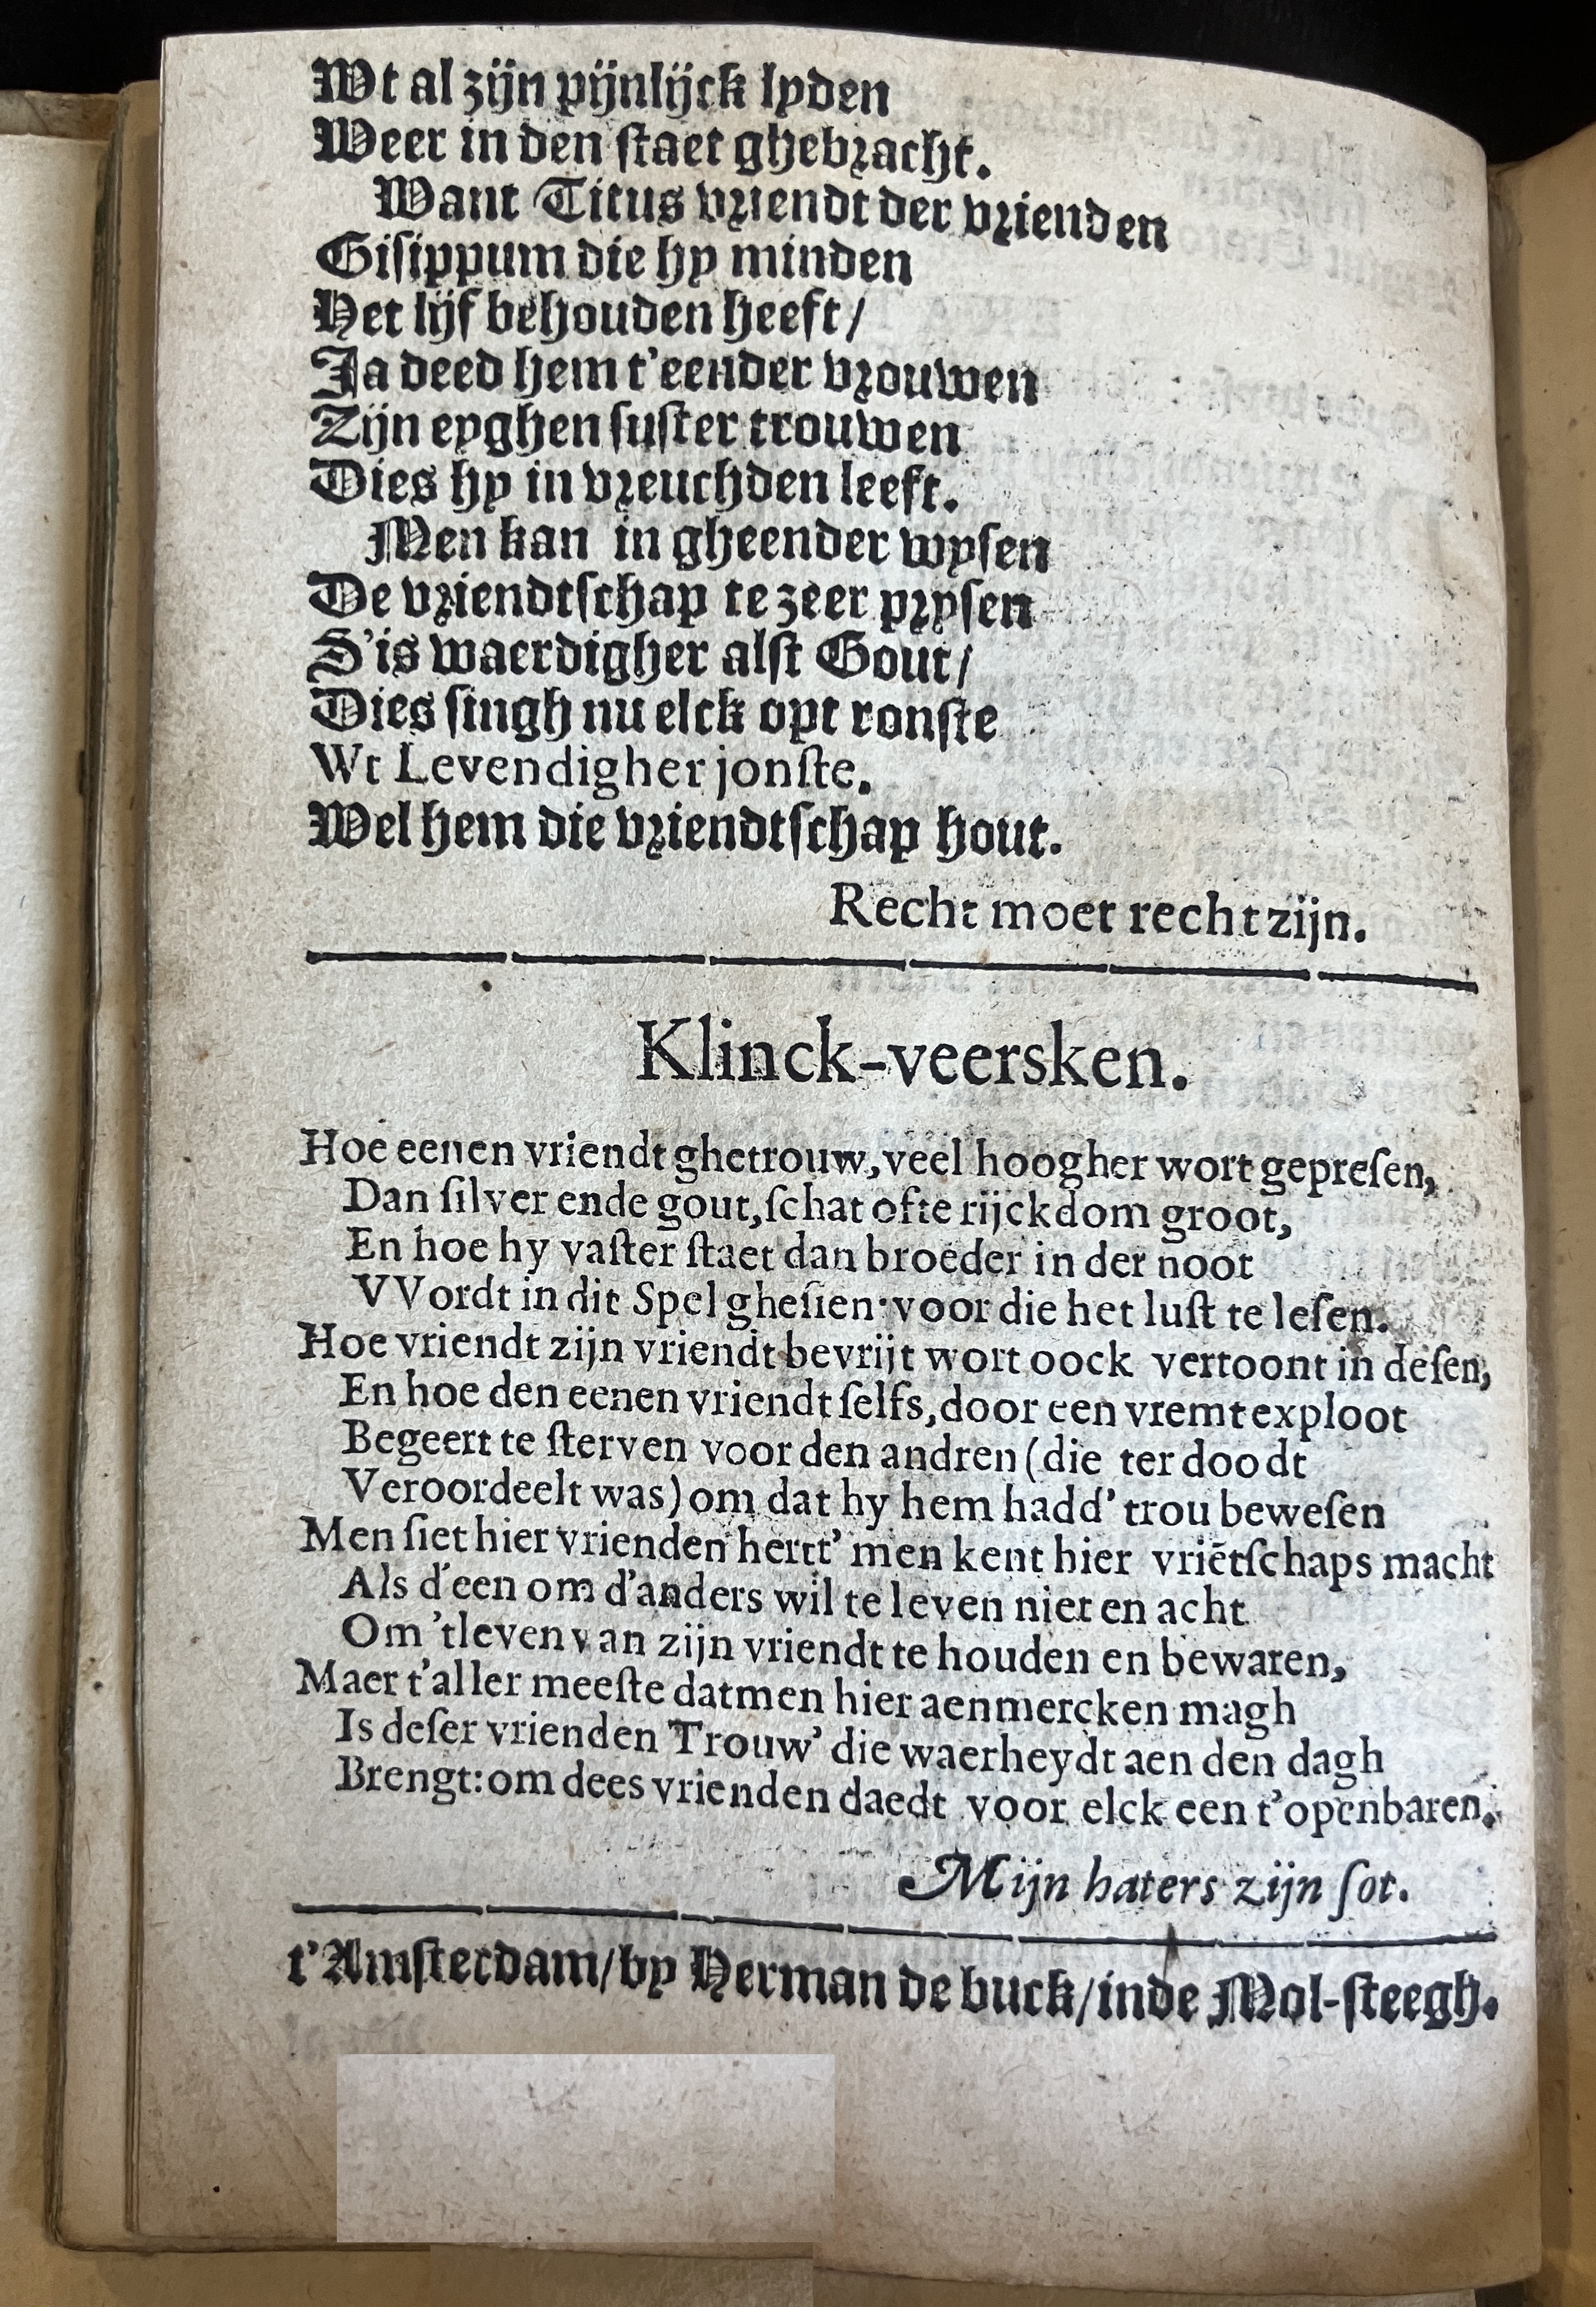 Wt al zijn pijnlijck lyden
Weer in den ſtaet ghebracht.
Want Titus vriendt der vrienden
Giſippum die hy minden
Het lijf behouden heeft/
Ja deed hem t'eender vrouwen
Zijn eyghen ſuſter trouwen
Dies hy in vreuchden leeft.
Men kan in gheender wyſen
De vriendtſchap te zeer pryſen
S'is waerdigher alſt Gout/
Dies ſingh nu elck opt ronſte
Wt Levendigher jonſte.
Wel hem die vriendtſchap hout.
Recht moet recht zijn.
Klinck-veersken.
Hoe eenen vriendt ghetrouw, veel hoogher wort gepreſen,
Dan ſilver ende gout, ſchat ofte rijckdom groot,
En hoe hy vaſter ſtaet dan broeder in der noot
VVordt in dit Spel gheſien: voor die het luſt te leſen.
Hoe vriendt zijn vriendt bevrijt wort oock vertoont in deſen,
En hoe den eenen vriendt ſelfs, door een vremt exploot
Begeert te ſterven voor den andren (die ter doodt
Veroordeelt was) om dat hy hem hadd' trou beweſen
Men ſiet hier vrienden hertt' men kent hier vriētſchaps macht
Als d'een om d'anders wil te leven niet en acht
Om 'tleven van zijn vriendt te houden en bewaren,
Maer t'aller meeſte datmen hier aenmercken magh
Is deſer vrienden Trouw' die waerheydt aen den dagh
Brengt: om dees vrienden daedt voor elck een t'openbaren.
Mijn haters zijn ſot.
t'Amſterdam/by Herman de buck/inde Mol-ſteegh.